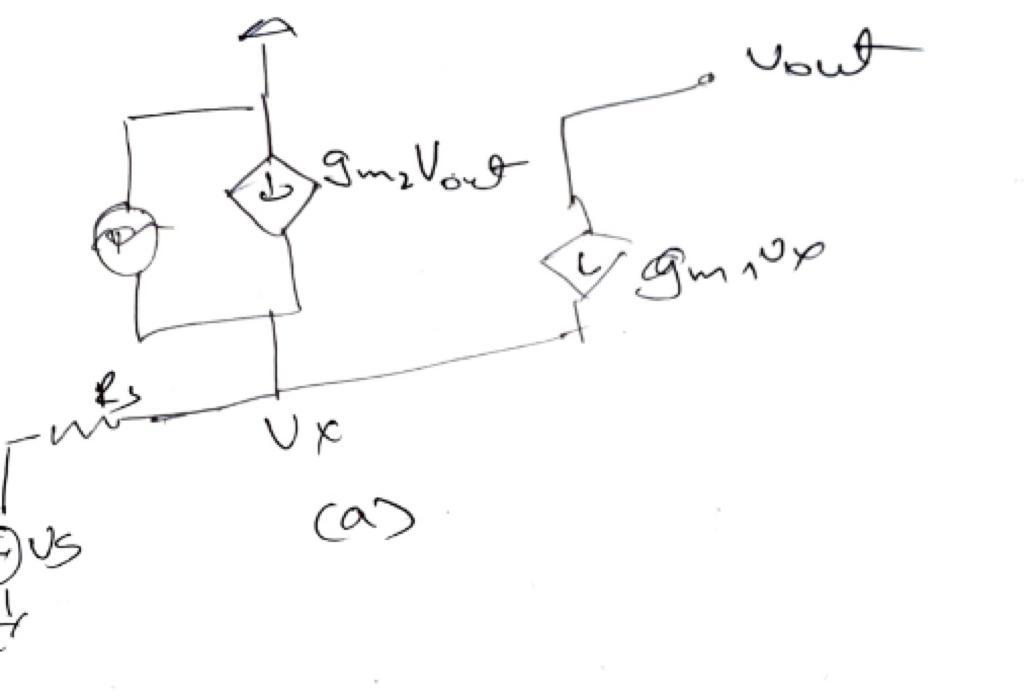 Vout
gm2Vout
gm1Vx
Rs
Vx
(a)
Vs